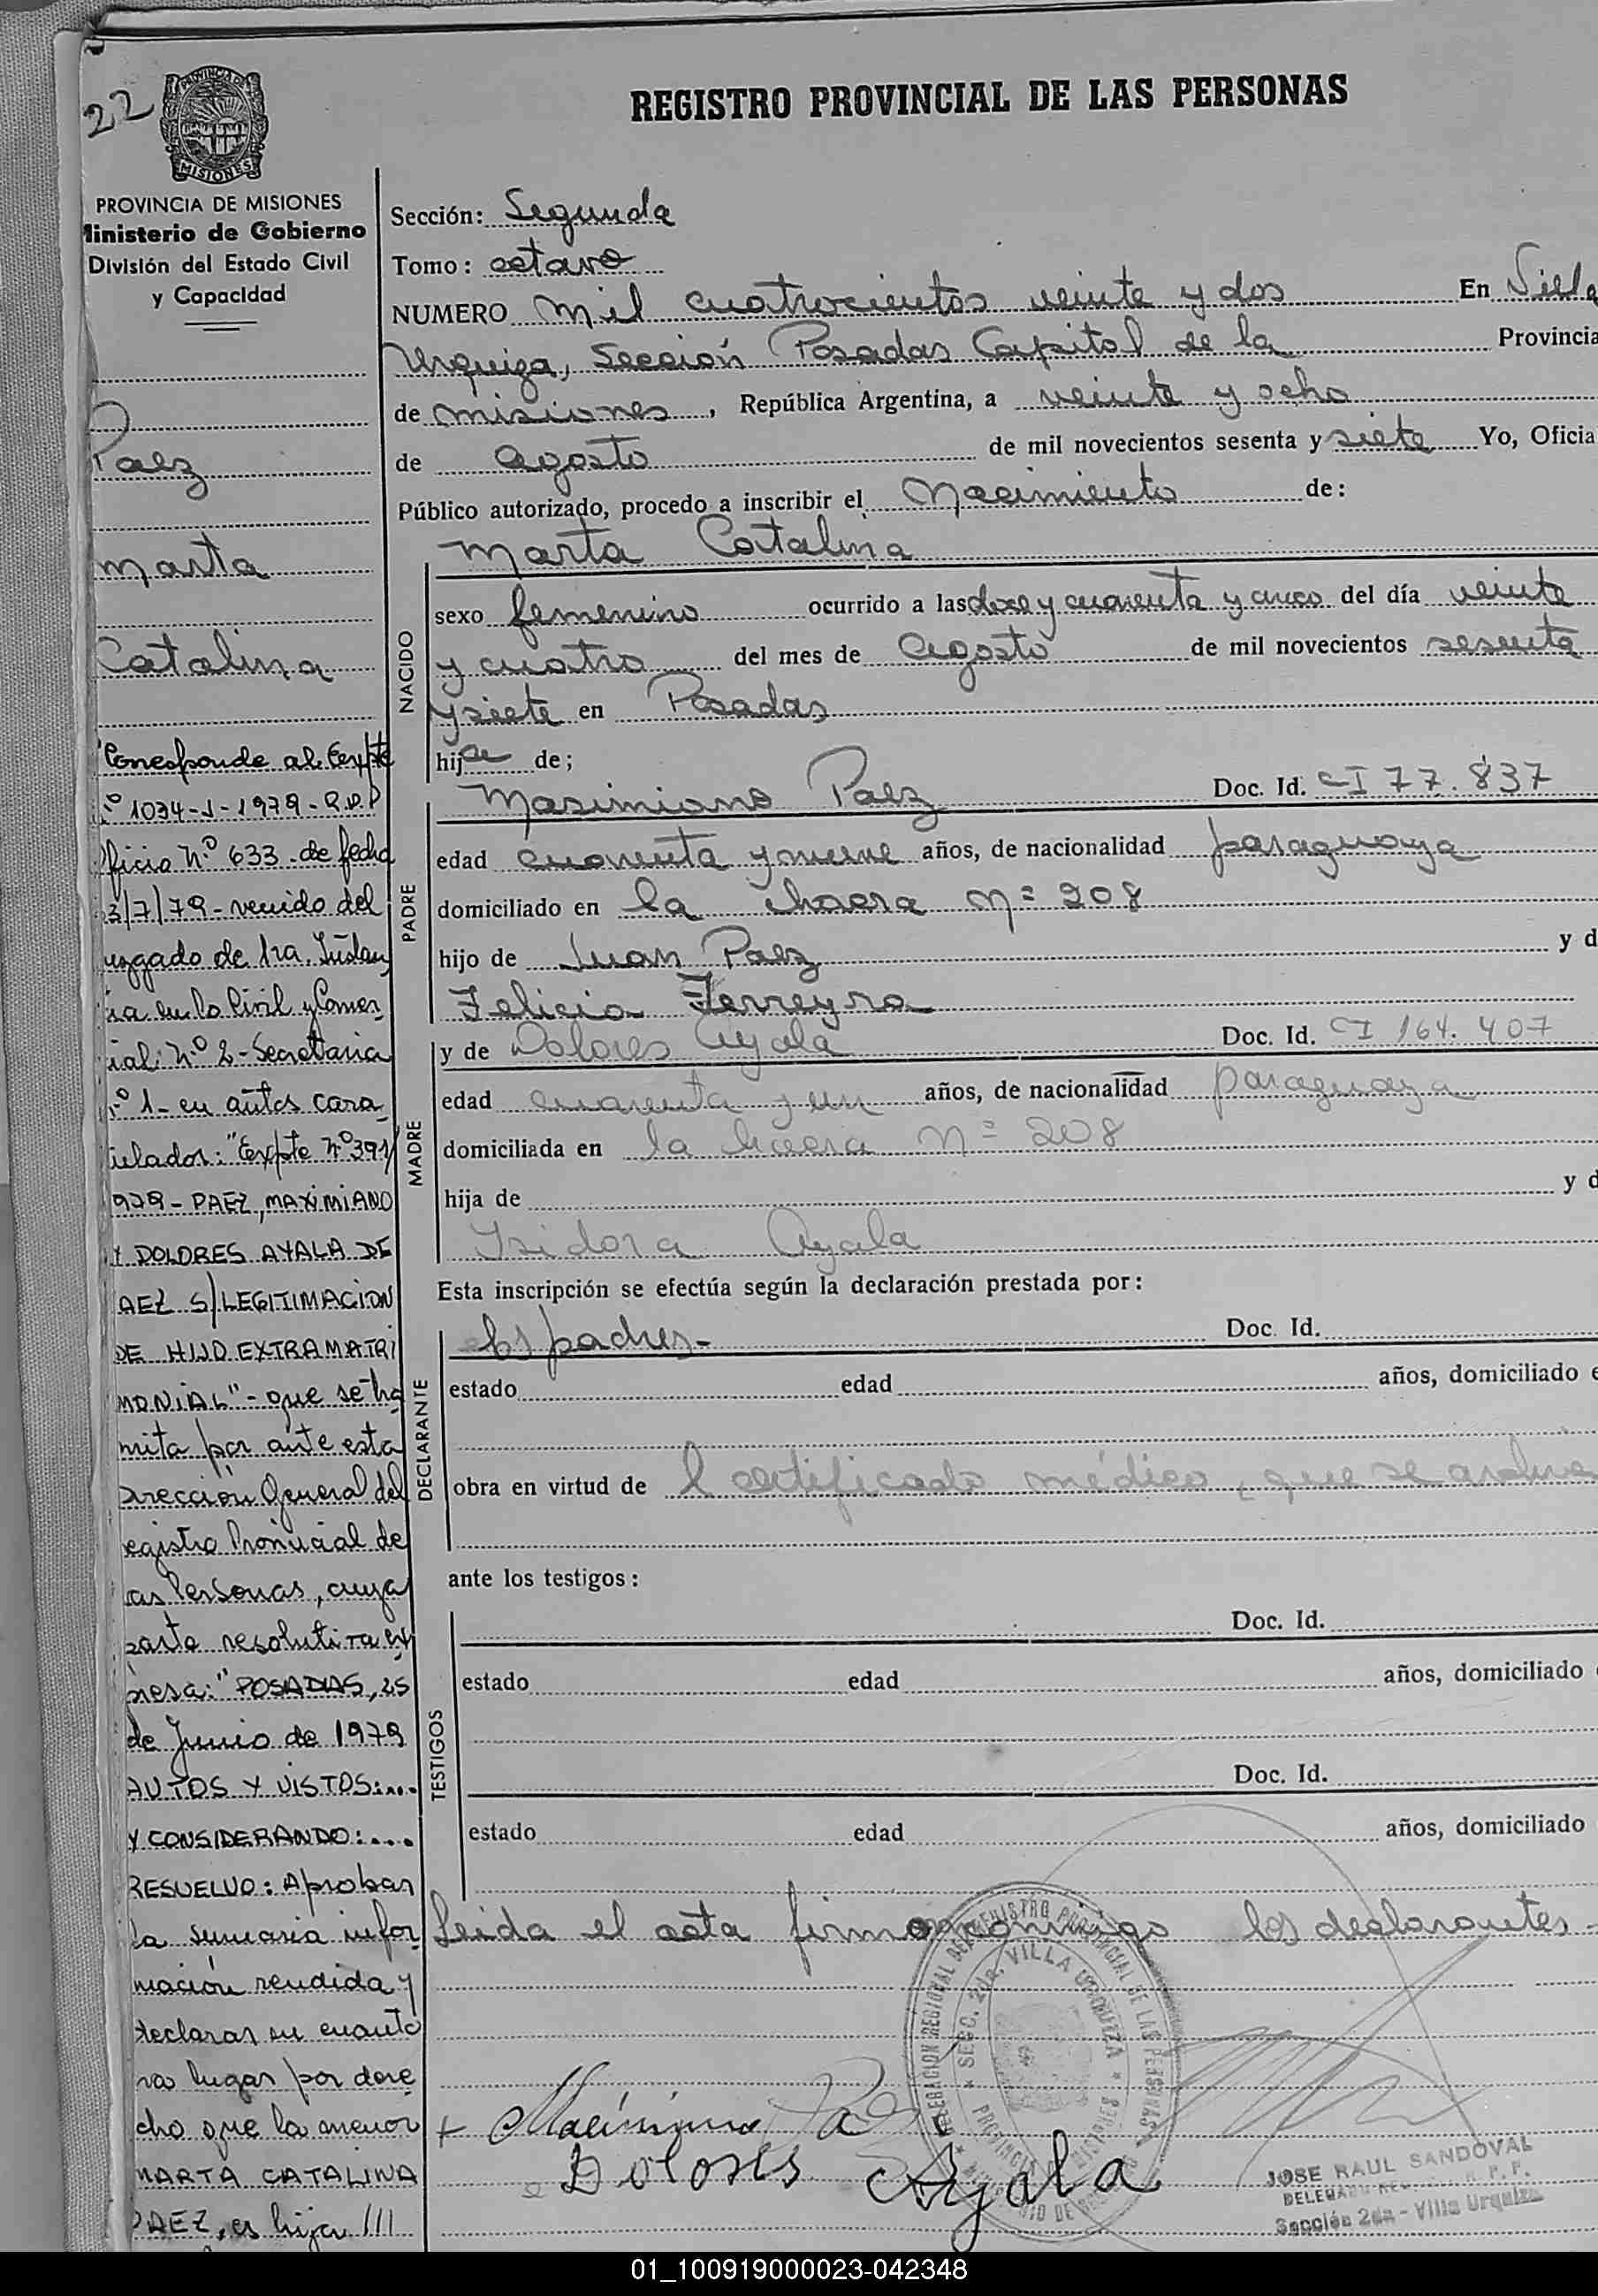 22
PROVINCIA DE MISIONES
Ministerio de Gobierno
División del Estado Civil
y Capacidad
Paez
Marta
Catalina
Corresponde al Expte
nº 1034-J-1979-R.P.P
ficio Nº 633-de fecha
3/7/79-venido del
uzgado de 1ra. Instan
ia en lo Civil y Comer
ial: Nº 2-Secretaria
nº 1-en autos cara
tulados: "Expte Nº 391/
979-PAEZ, MAXIMIANO
Y DOLORES AYALA DE
AEZ S/LEGITIMACION
DE HIJO EXTRAMATRI
MONIAL"-que se tra
mita por ante esta
Dirección General del
egistro Provincial de
as Personas, cuya
parte resolutiva ex
presa: "POSADAS, 25
de Junio de 1979
AUTOS Y VISTOS:...
Y CONSIDERANDO:....
RESUELVO: Aprobar
la sumaria infor
mación rendida y
declarar en cuanto
ha lugar por dere
cho que la menor
MARTA CATALINA
PAEZ, es hija ///
REGISTRO PROVINCIAL DE LAS PERSONAS
Sección: Segunda
Tomo: octavo
NUMERO mil cuatrocientos veinte y dos En Villa
Urquiza, Sección Posadas Capital de la Provincia
de misiones, República Argentina, a veinte y ocho
de agosto de mil novecientos sesenta y siete Yo, Oficia
Público autorizado, procedo a inscribir el Nacimiento de:
NACIDO
Marta Catalina
sexo femenino ocurrido a las doce y cuarenta y cinco del día veinte
y cuatro del mes de agosto de mil novecientos sesenta
y siete en Posadas
hija de;
PADRE
Masimiano Paez Doc. Id. CI 77.837
edad cuarenta y nueve años, de nacionalidad paraguaya
domiciliado en la chacra Nº 208
hijo de Juan Paez y d
Felicia Ferreyra
MADRE
y de Dolores Ayala Doc. Id. CI 164.407
edad cuarenta y un años, de nacionalidad paraguaya
domiciliada en la chacra Nº 208
hija de y d
Isidora Ayala
Esta inscripción se efectúa según la declaración prestada por:
DECLARANTE
los padres- Doc. Id.
estado edad años, domiciliado e
obra en virtud de l certificado médico, que se archiva
ante los testigos:
TESTIGOS
Doc. Id.
estado edad años, domiciliado
Doc. Id.
estado edad años, domiciliado
Leida el acta firman conmigo los declarantes-
DELEGACION REGIONAL DEL REGISTRO PROVINCIAL DE LAS PERSONAS
SECC. 2da. VILLA URQUIZA
PROVINCIA DE MISIONES
Dolores Ayala
JOSE RAUL SANDOVAL
Sección 2da - Villa Urquiza
01_100919000023-042348